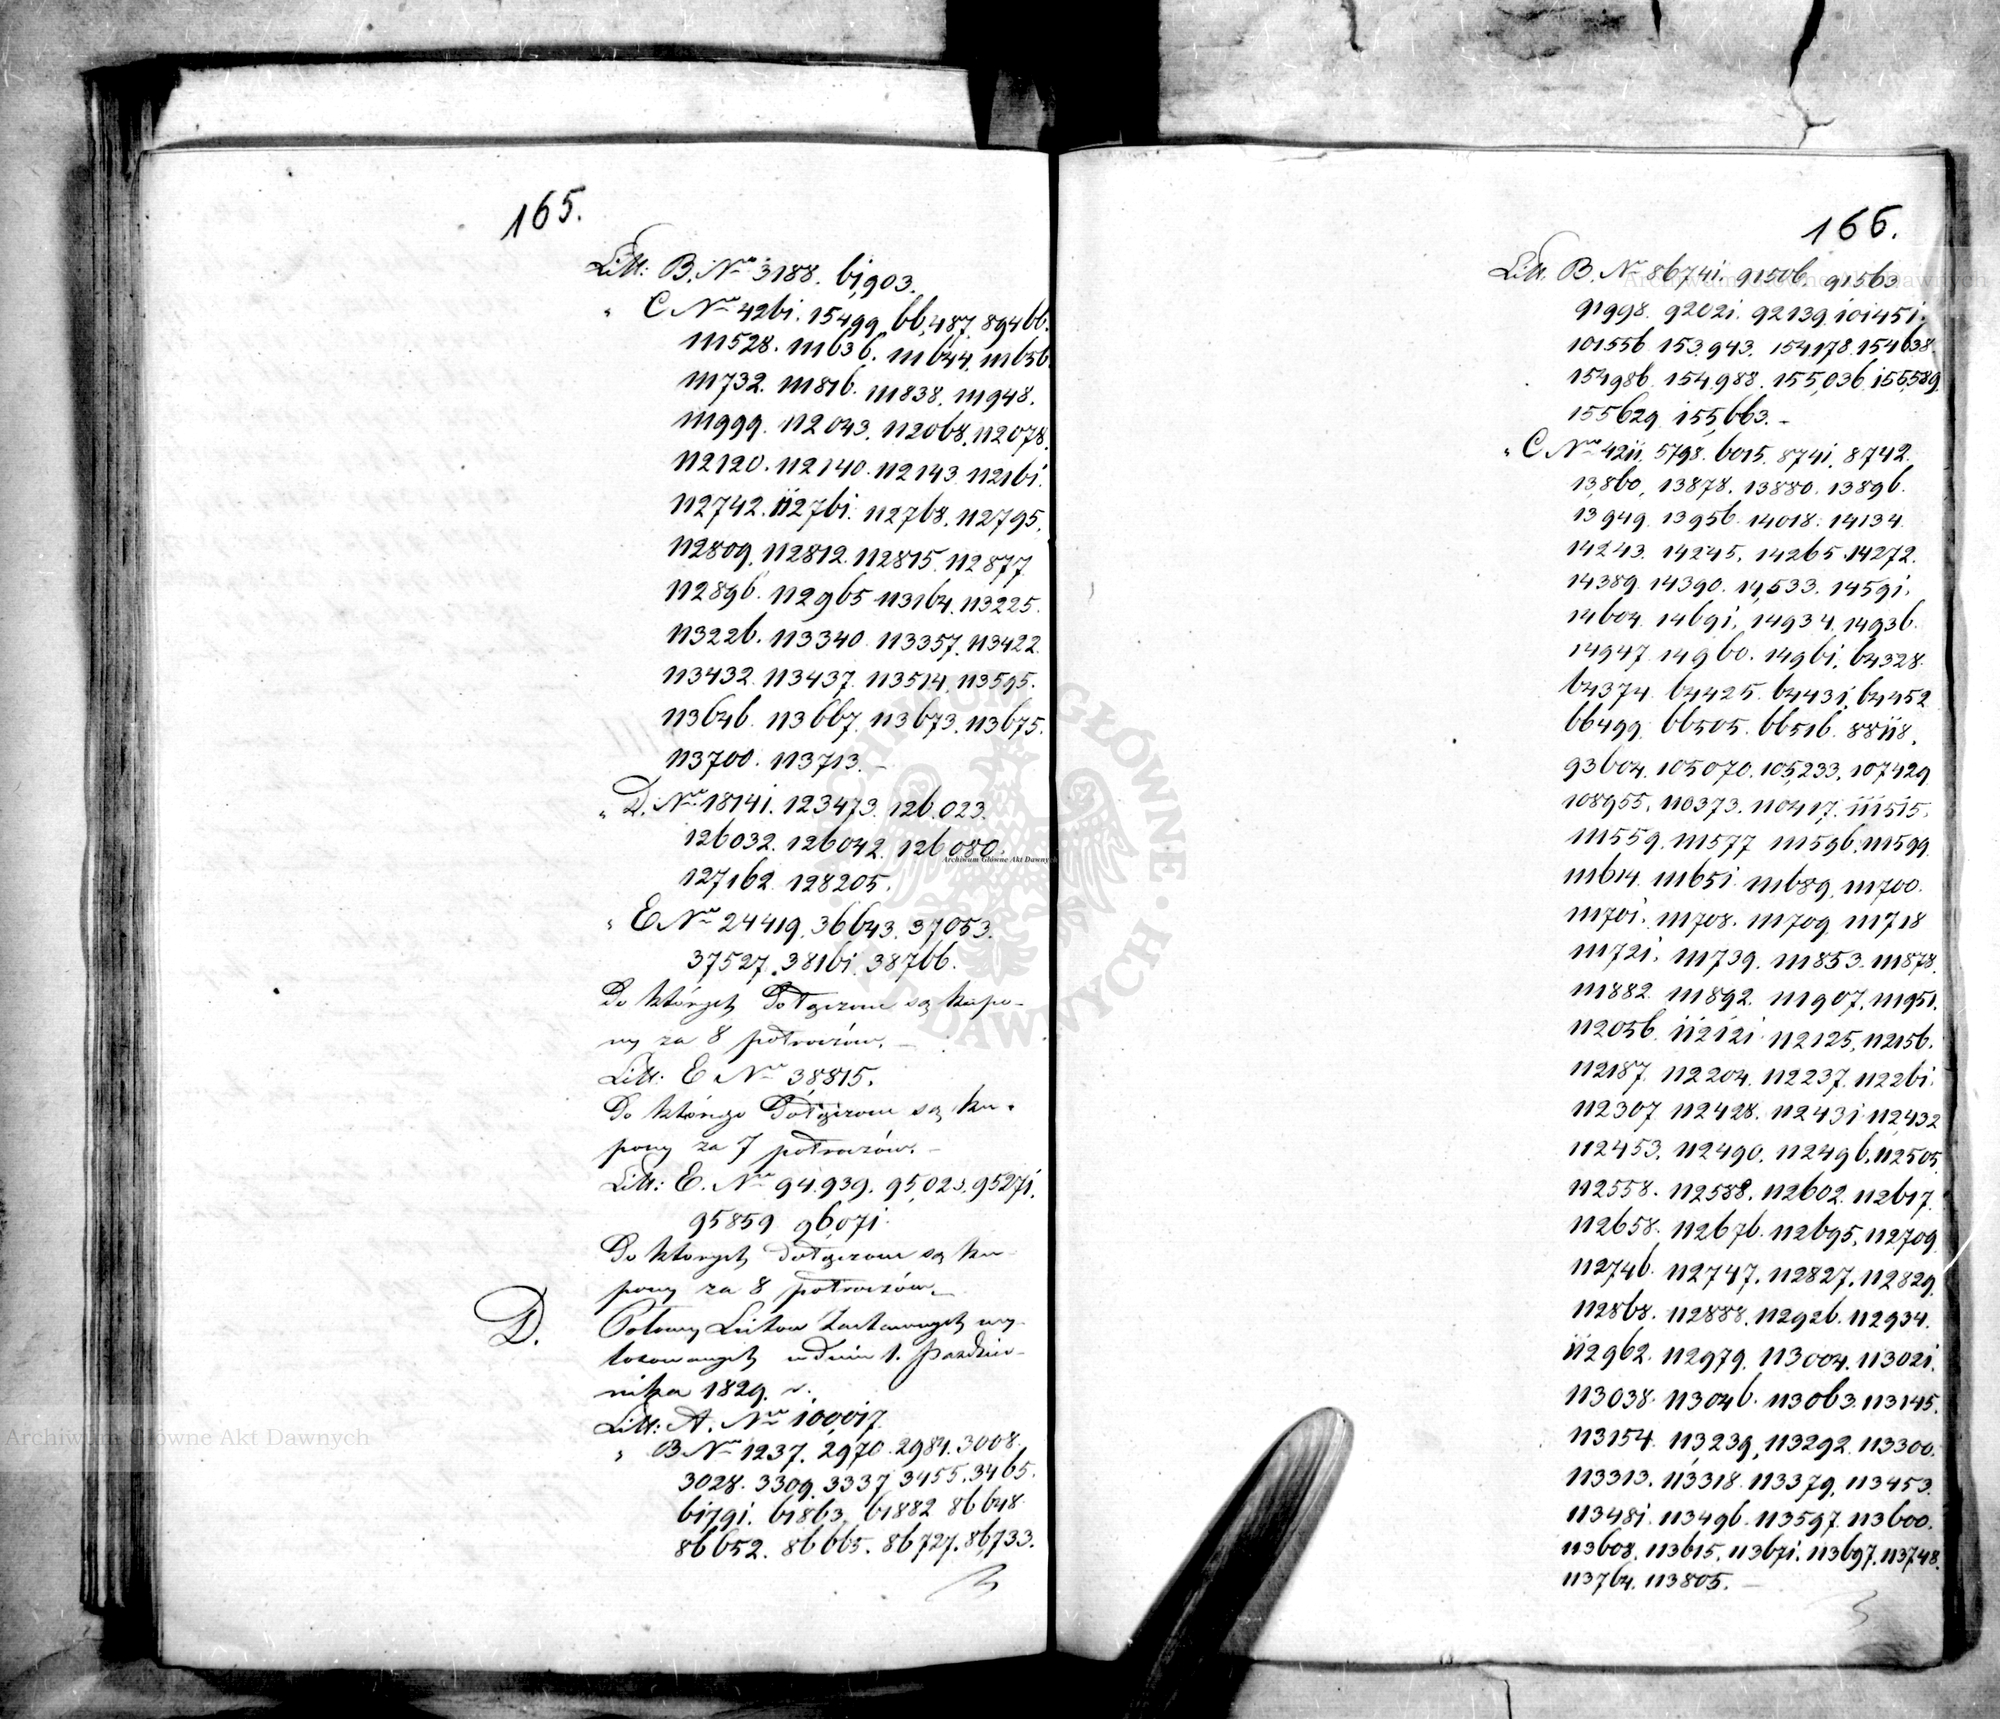 165.
Litt: B. Nro 3188. 61,903.
" C Nro 4261. 15499. 66,487. 89466.
111528. 111636. 111644. 111656.
111732. 111816. 111838. 111948.
111999. 112043. 112068. 112078.
112120. 112140. 112143. 112161.
112742. 112761. 112768. 112795.
112809. 112812. 112815. 112877.
112896. 112965. 113164. 113225.
113226. 113340. 113357. 113422.
113432. 113437. 113514. 113595.
113646. 113667. 113673. 113675.
113700. 113713. –
" D. Nro 18141. 123473. 126.023.
126032. 126042. 126080.
127162. 128205.
" E Nro 24419. 36643. 37053.
37527. 38161. 38766.
Do których dołączone są kupo-
ny za 8 półroczów. –
Litt: E Nro 38815.
Do którego dołączone są ku-
pony za 7 półroczów. –
Litt: E. Nro 94.939. 95,023. 95271.
95859. 96,071.
Do których dołączone są ku-
pony za 8 półroczów. –
D. Połowy Listów Zastawnych wy-
losowanych w dniu 1. Paździer-
nika 1829. r.
Litt: A. Nro 100017.
" B Nro 1237. 2970. 2984. 3008.
3028. 3309. 3337. 3455. 3465.
61791. 61863. 61882. 86648.
86652. 86665. 86727. 86,733.
166.
Litt. B. Nro 86741. 91506. 91563
91998. 92021. 92139. 101451.
101556. 153.943. 154178. 154638.
154986. 154988. 155,036. 155589.
155629. 155,663. –
" C Nro 4211. 5798. 6015. 8741. 8742.
13,860. 13878. 13880. 13896.
13949. 13956. 14018. 14134.
14243. 14245. 14265. 14272.
14389. 14390. 14,533. 14591.
14604. 14691. 14934. 14936.
14947. 14960. 14961. 64328.
64374. 64425. 64431. 64452
66499. 66505. 66516. 88118.
93604. 105070. 105,233. 107429.
108955. 110373. 110417. 111515.
111559. 111577. 111596. 111599.
111614. 111651. 111689. 111700.
111701. 111708. 111709. 111718
111721. 111739. 111853. 111878.
111882. 111892. 111907. 111951.
112056. 112121. 112125. 112156.
112187. 112204. 112237. 112261.
112307. 112428. 112431. 112432
112453. 112490. 112496. 112505.
112558. 112588. 112602. 112617.
112658. 112676. 112695. 112709.
112746. 112747. 112827. 112829.
112868. 112888. 112926. 112934.
112962. 112979. 113004. 113021.
113038. 113046. 113063. 113145.
113154. 113239. 113292. 113300.
113313. 113318. 113379. 113453.
113481. 113496. 113597. 113600.
113608. 113615. 113671. 113697. 113748.
113764. 113805. –
Archiwum Główne Akt Dawnych
Archiwum Główne Akt Dawnych
Archiwum Główne Akt Dawnych